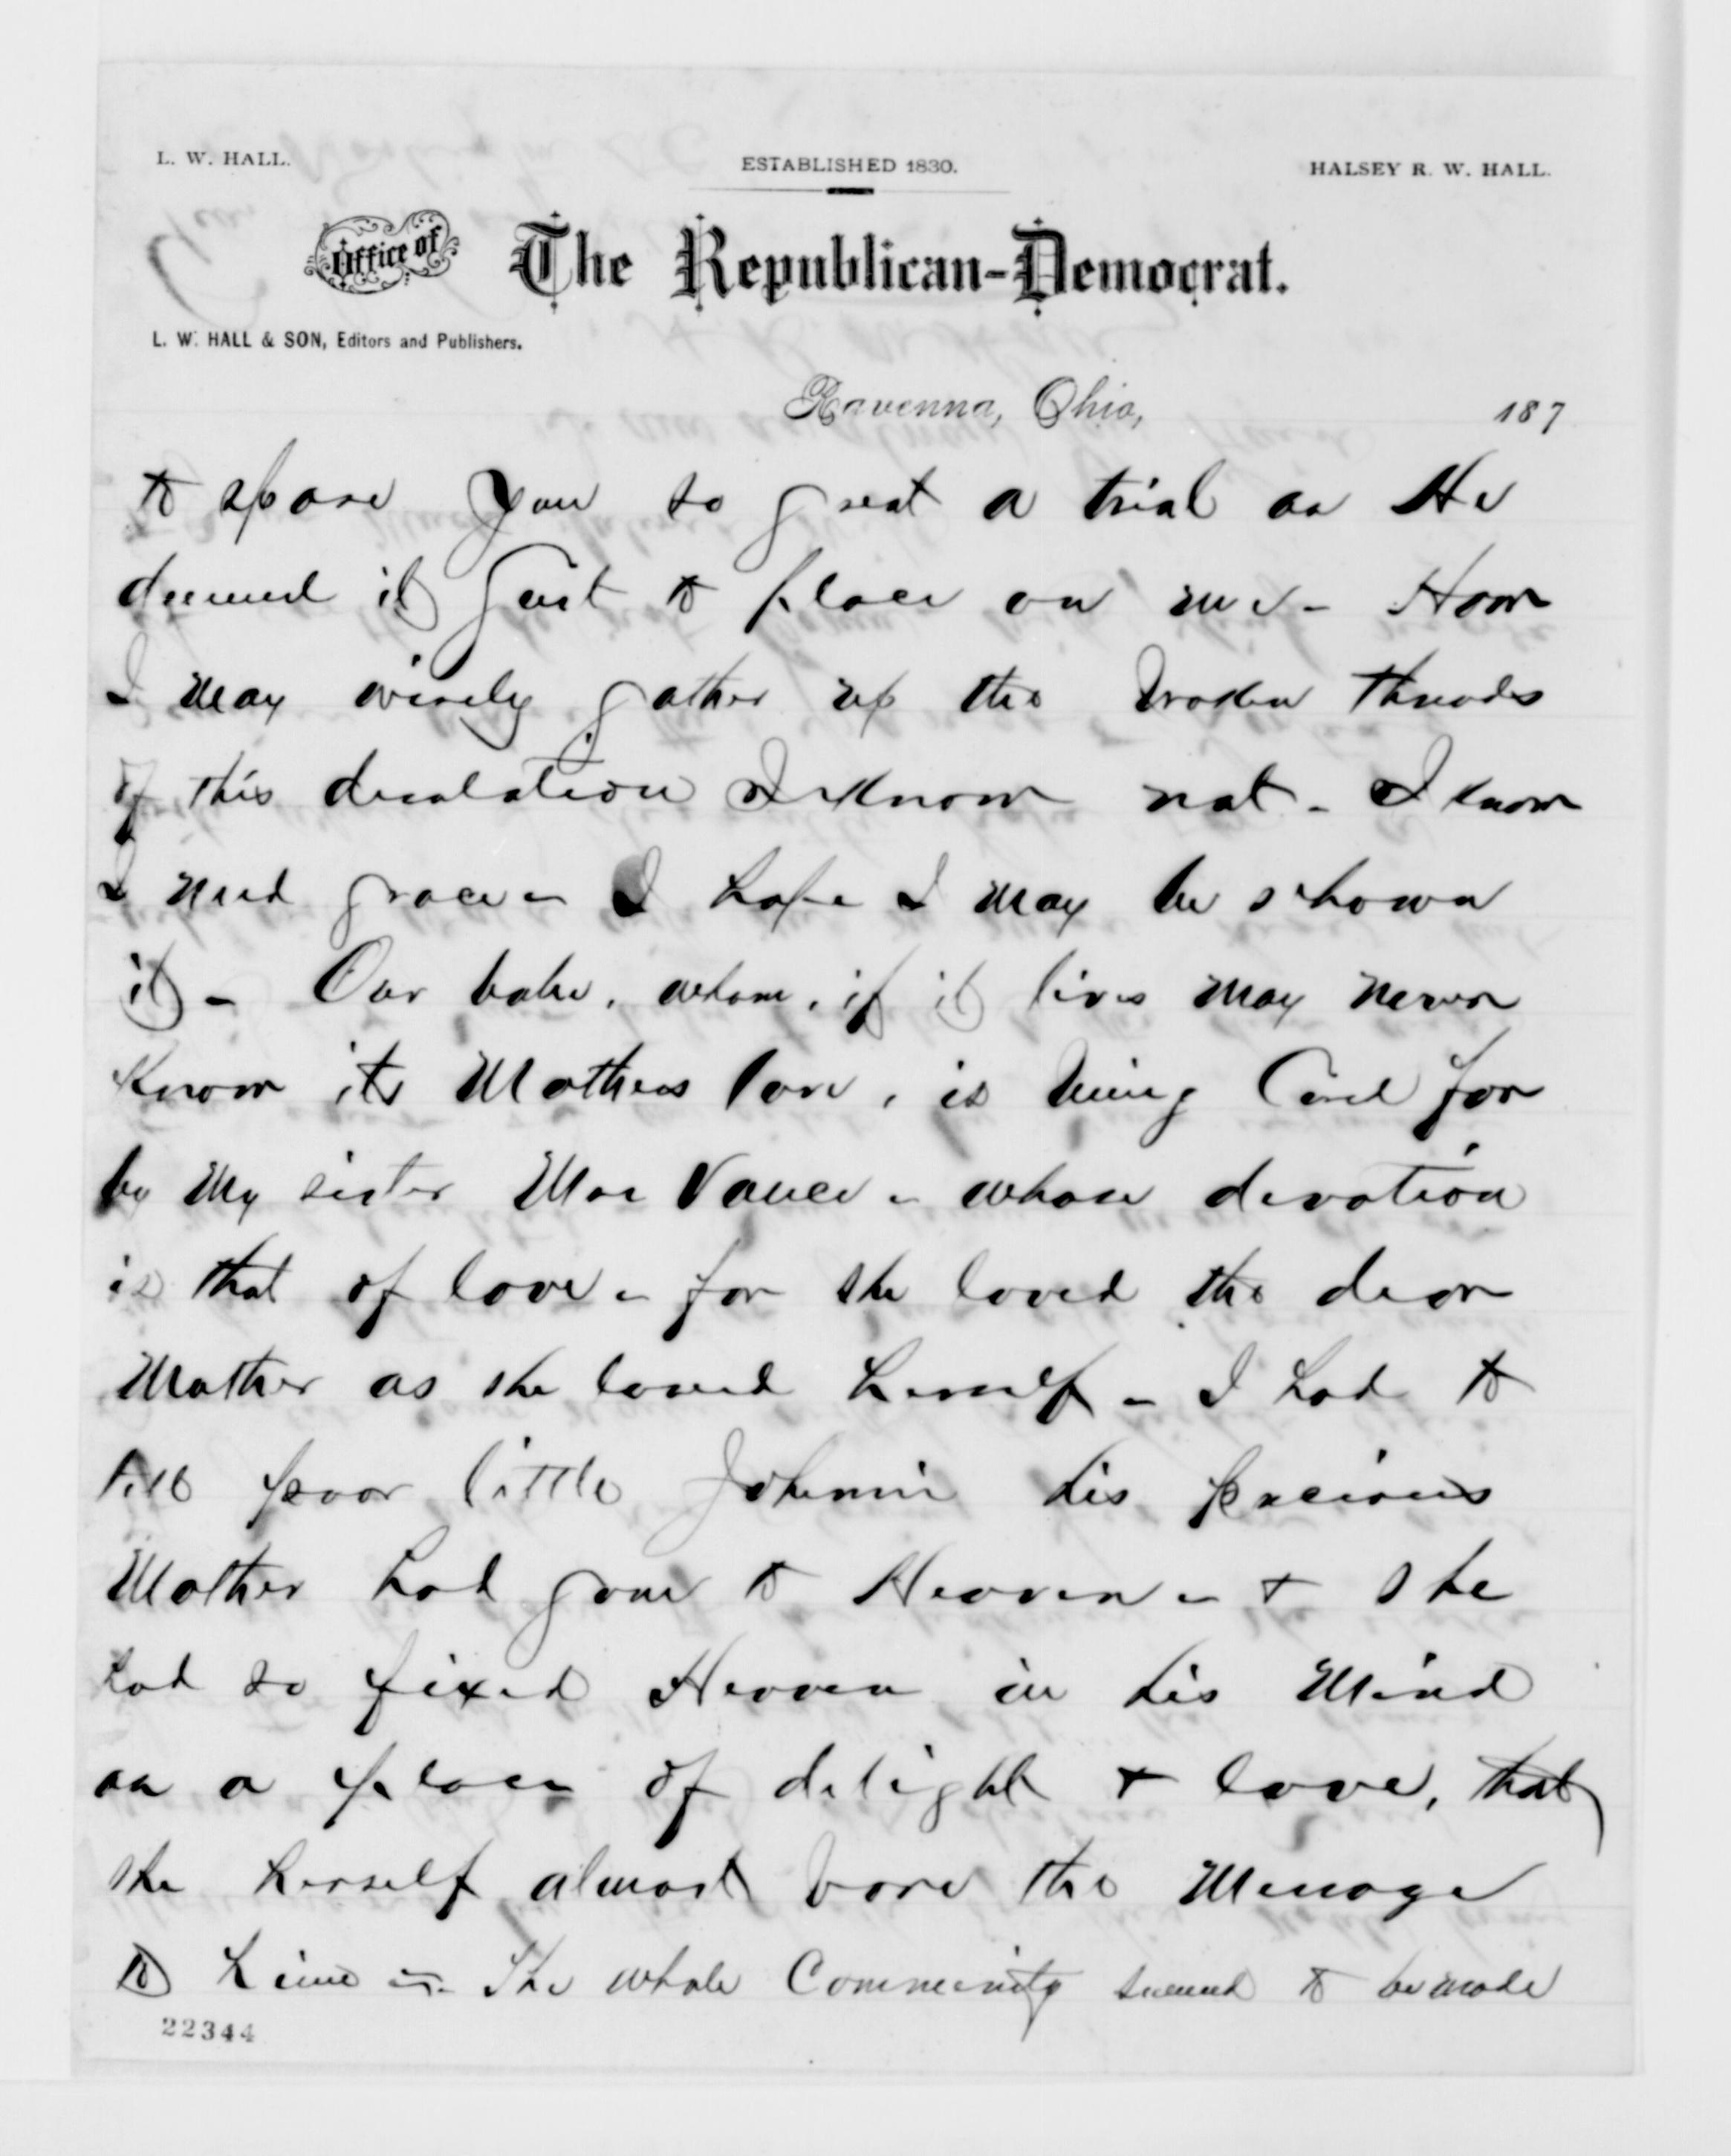 L. W. HALL. ESTABLISHED 1830. HALSEY R. W. HALL.
Office of The Republican-Democrat.
L. W. HALL & SON, Editors and Publishers.
Ravenna, Ohio, 187
to spare you so great a trial as He
deemed it just to place on me - How
I may wisely gather up the broken threads
of this desolation I know not - I know
I need grace - I hope I may be shown
it - Our babe, whom, if it lives may never
know its Mothers love, is being Cared for
by my sister Mrs Vance - whose devotion
is that of love - for she loved the dear
Mother as she loved herself - I had to
tell poor little Johnnie his precious
Mother had gone to Heaven - + she
had so fixed Heaven in his mind
as a place of delight + love, that
she herself almost bore the message
to him - The whole Community seemed to be made
22344